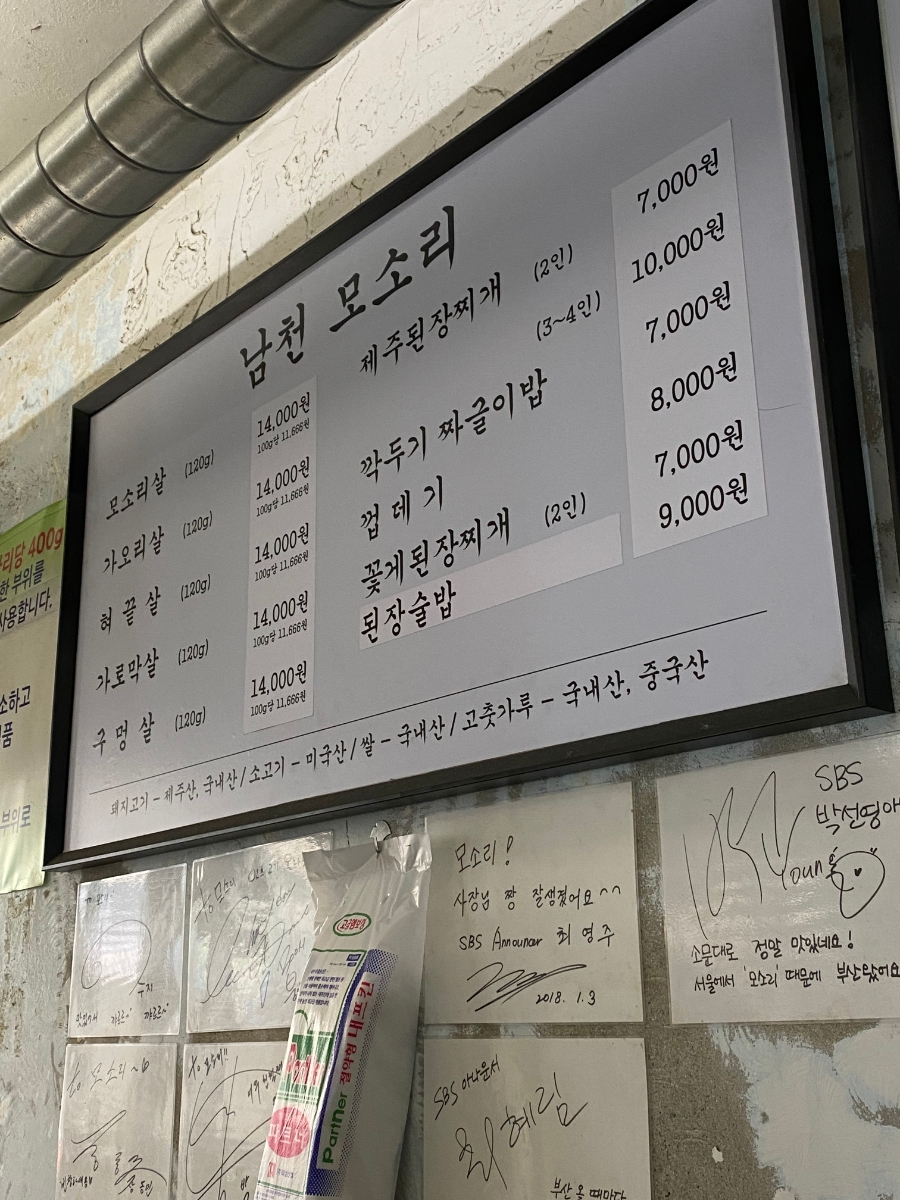 남천 모소리
모소리살 (120g) 14,000원
100g당 11,666원
가오리살 (120g) 14,000원
100g당 11,666원
혀 끌 살 (120g) 14,000원
100g당 11,666원
가로막살 (120g) 14,000원
100g당 11,666원
구 멍 살 (120g) 14,000원
100g당 11,666원
제주된장찌개 (2인) 7,000원
(3~4인) 10,000원
깍두기 짜글이밥 7,000원
껍 데 기 8,000원
꽃게된장찌개 (2인) 7,000원
된장술밥 9,000원
돼지고기 – 제주산, 국내산 / 소고기 – 미국산 / 쌀 – 국내산 / 고춧가루 – 국내산, 중국산
리당 400g
한 부위를
사용합니다.
소하고
품
부위로
모소리!
사장님 짱 잘생겼어요^^
SBS Announcer 최영주
2018. 1. 3
SBS
박선영
소문대로 정말 맛있네요!
서울에서 '모소리' 때문에 부산왔어요
수지
SBS 아나운서
부산 올 때마다
Partner 절약형 내프킨
파트너